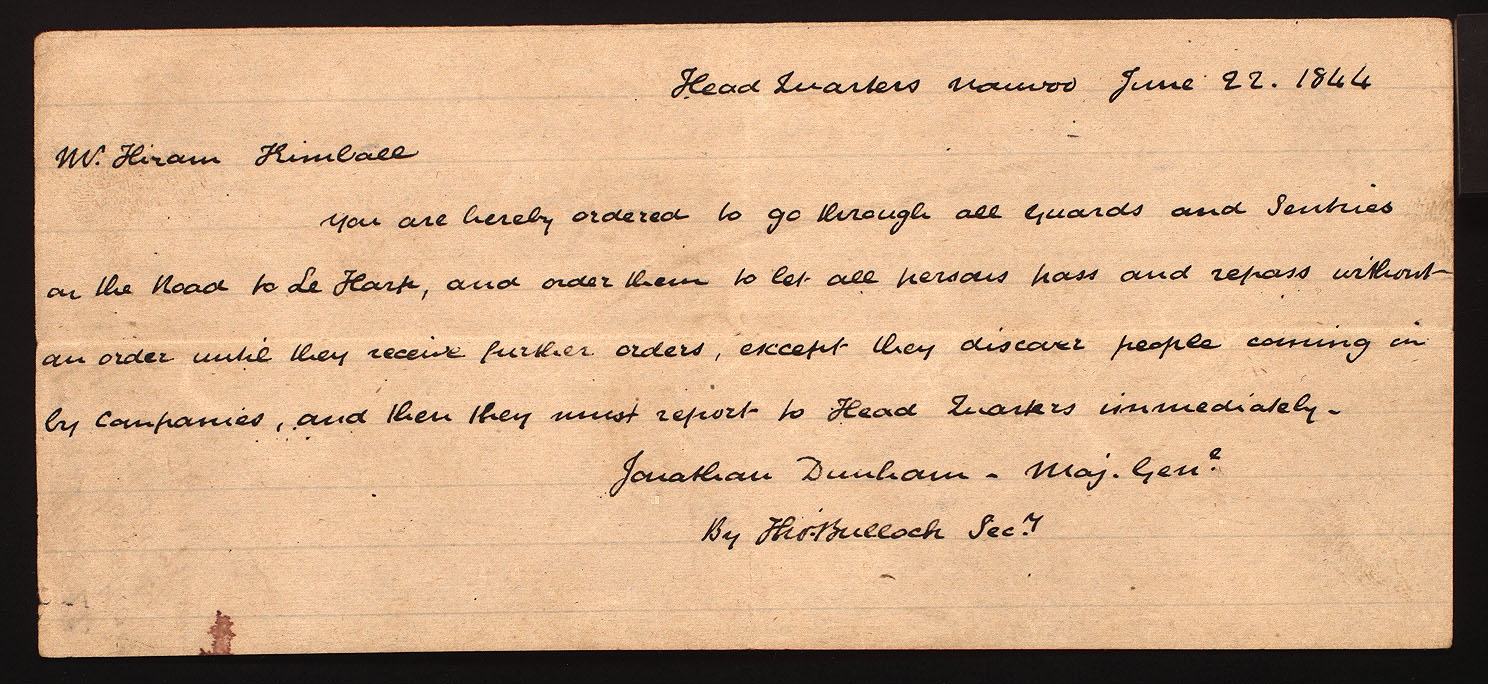 Head Quarters Nauvoo June 22. 1844
Mr. Hiram Kimball
You are hereby ordered to go through all guards and Sentries
on the Road to Le Harp, and order them to let all persons pass and repass without
an order until they receive further orders, except they discover people coming in
by Companies, and then they must report to Head Quarters immediately -
Jonathan Dunham - Maj. Genl.
By Tho. Bullock Secy.